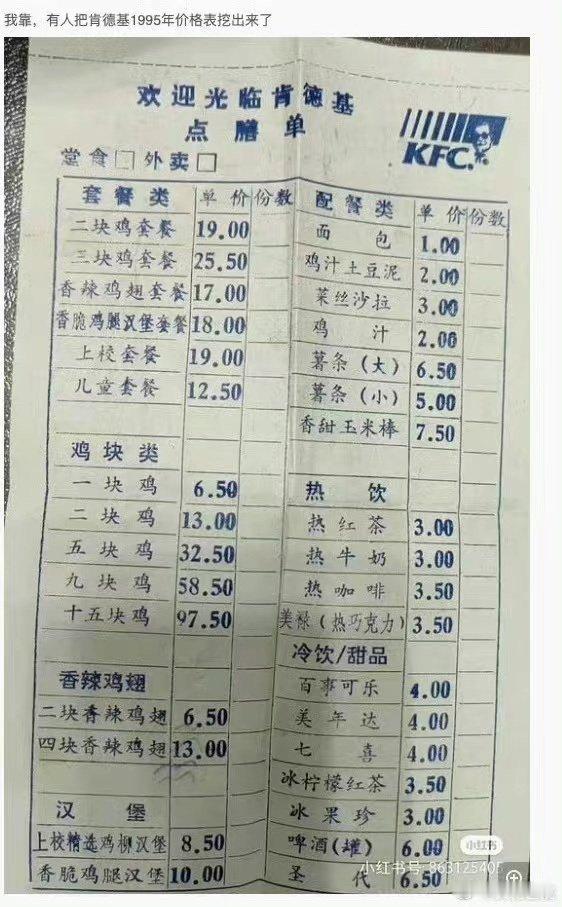 我靠，有人把肯德基1995年价格表挖出来了
欢迎光临肯德基
点膳单
KFC
堂食□ 外卖□
套餐类 单价 份数
二块鸡套餐 19.00
三块鸡套餐 25.50
香辣鸡翅套餐 17.00
香脆鸡腿汉堡套餐 18.00
上校套餐 19.00
儿童套餐 12.50
鸡块类
一块鸡 6.50
二块鸡 13.00
五块鸡 32.50
九块鸡 58.50
十五块鸡 97.50
香辣鸡翅
二块香辣鸡翅 6.50
四块香辣鸡翅 13.00
汉堡
上校精选鸡柳汉堡 8.50
香脆鸡腿汉堡 10.00
配餐类 单价 份数
面包 1.00
鸡汁土豆泥 2.00
菜丝沙拉 3.00
鸡汁 2.00
薯条（大） 6.50
薯条（小） 5.00
香甜玉米棒 7.50
热饮
热红茶 3.00
热牛奶 3.00
热咖啡 3.50
美禄（热巧克力） 3.50
冷饮/甜品
百事可乐 4.00
美年达 4.00
七喜 4.00
冰柠檬红茶 3.50
冰果珍 3.00
啤酒(罐) 6.00
圣代 6.50
小红书
小红书号 863125405